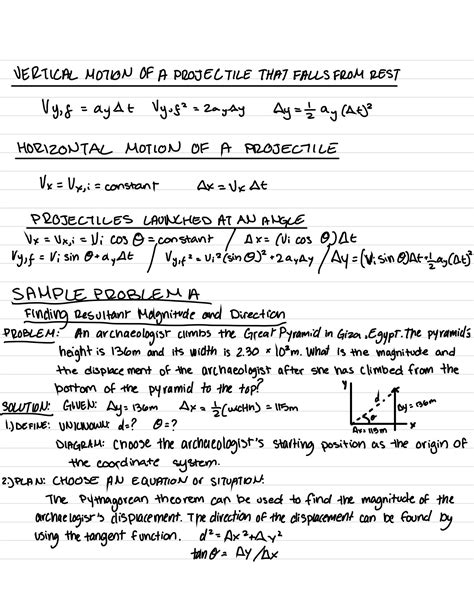 VERTICAL MOTION OF A PROJECTILE THAT FALLS FROM REST
Vy,f = ayΔt Vy,f² = 2ayΔy Δy = ½ ay (Δt)²
HORIZONTAL MOTION OF A PROJECTILE
Vx = Vx,i = constant Δx = Vx Δt
PROJECTILES LAUNCHED AT AN ANGLE
Vx = Vx,i = Vi cos θ = constant / Δx = (Vi cos θ)Δt
Vy,f = Vi sin θ + ayΔt / Vy,f² = Vi² (sin θ)² + 2ayΔy / Δy = (Vi sin θ)Δt + ½ ay(Δt)²
SAMPLE PROBLEM A
Finding Resultant Magnitude and Direction
PROBLEM: An archaeologist climbs the Great Pyramid in Giza, Egypt. The pyramid's
height is 136m and its width is 2.30 × 10²m. What is the magnitude and
the displacement of the archaeologist after she has climbed from the
bottom of the pyramid to the top?
SOLUTION: GIVEN: Δy = 136m Δx = ½(width) = 115m
1.) DEFINE: UNKNOWN: d=? θ=?
y
d
θ
Δy = 136m
x
Δx = 115m
DIAGRAM: Choose the archaeologist's starting position as the origin of
the coordinate system.
2.) PLAN: CHOOSE AN EQUATION OR SITUATION:
The Pythagorean theorem can be used to find the magnitude of the
archaeologist's displacement. The direction of the displacement can be found by
using the tangent function. d² = Δx² + Δy²
tan θ = Δy/Δx